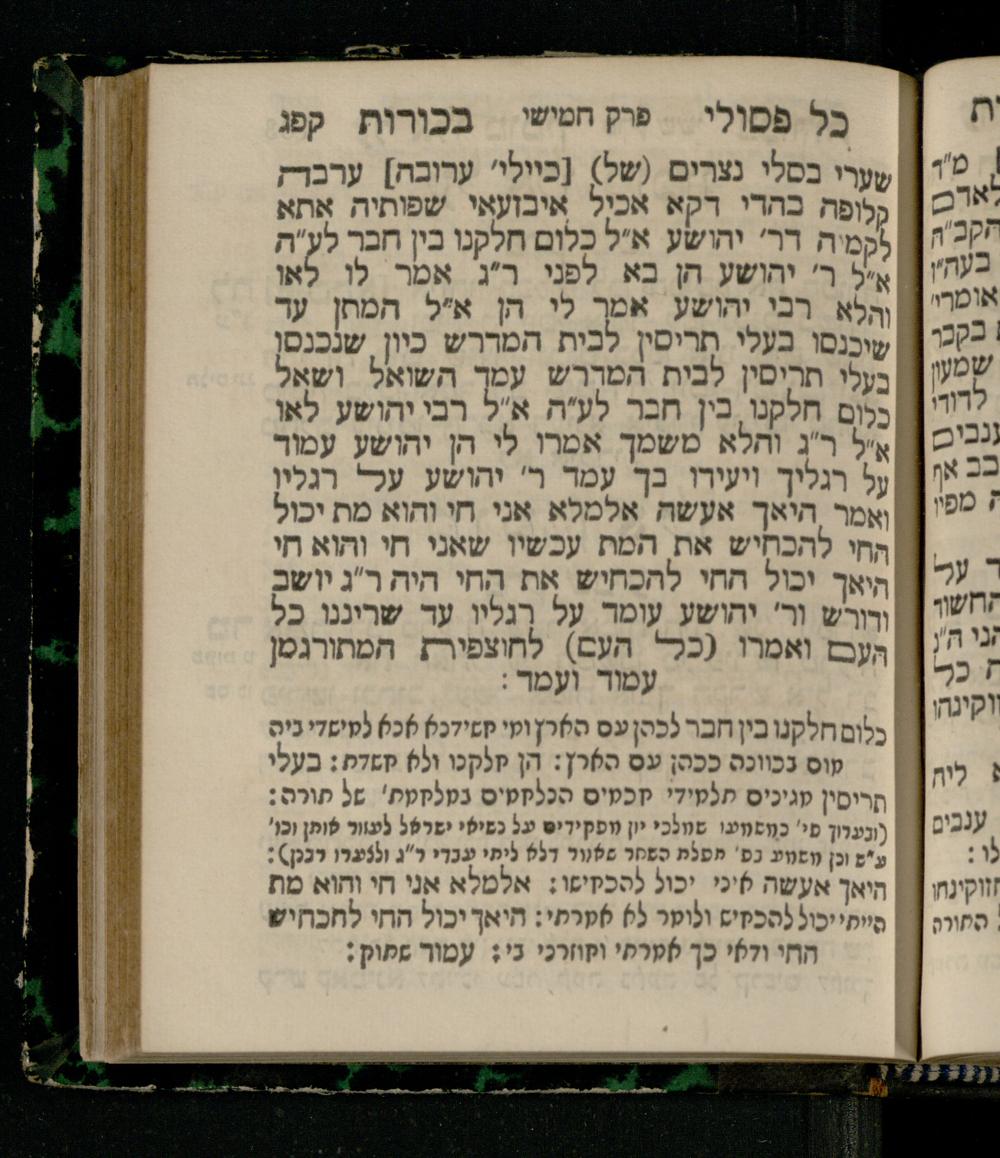 כל פסולי פרק חמישי בכורות קפג
שערי בסלי נצרים (של) [כיילי׳ ערובה] ערבה
קלופה בהדי דקא אכיל איבזעאי שפותיה אתא
לקמיה דר׳ יהושע א״ל כלום חלקנו בין חבר לע״ה
א״ל ר׳ יהושע הן בא לפני ר״ג אמר לו לאו
והלא רבי יהושע אמר לי הן א״ל המתן עד
שיכנסו בעלי תריסין לבית המדרש כיון שנכנסו
בעלי תריסין לבית המדרש עמד השואל ושאל
כלום חלקנו בין חבר לע״ה א״ל רבי יהושע לאו
א״ל ר״ג והלא משמך אמרו לי הן יהושע עמוד
על רגליך ויעידו בך עמד ר׳ יהושע על רגליו
ואמר היאך אעשה אלמלא אני חי והוא מת יכול
החי להכחיש את המת עכשיו שאני חי והוא חי
היאך יכול החי להכחיש את החי היה ר״ג יושב
ודורש ור׳ יהושע עומד על רגליו עד שריננו כל
העם ואמרו (כל העם) לחוצפית המתורגמן
עמוד ועמד :
כלום חלקנו בין חבר לכהן עם הארץ ומי חשידנא אנא למישדי ביה
מום בכוונה ככהן עם הארץ : הן חלקנו ולא חשדת : בעלי
תריסין מגינים תלמידי חכמים הנלחמים במלחמת׳ של תורה :
(ובערוך פי׳ כמשמעו שמלכי יון מפקידים על נשיאי ישראל לעזור אותן וכו׳
ע״ש וכן משמע בפ׳ תפלת השחר שאמר דלא ליתי עבדי ר״ג ולצערו רבנן) :
היאך אעשה איני יכול להכחישו : אלמלא אני חי והוא מת
הייתי יכול להכחיש ולומר לא אמרתי : היאך יכול החי להכחיש
החי ודאי כך אמרתי וחוזרני בי : עמוד שתוק :
ת
מ״ד
לאדם
הקב״ה
בעה״ז
אומרי׳
בקבר
שמעון
לדודי
ענבים
בב אף
ה מפיו
ד על
החשוד
הני ה״נ
ה כל
ליה
ענבים
לו :
התורה